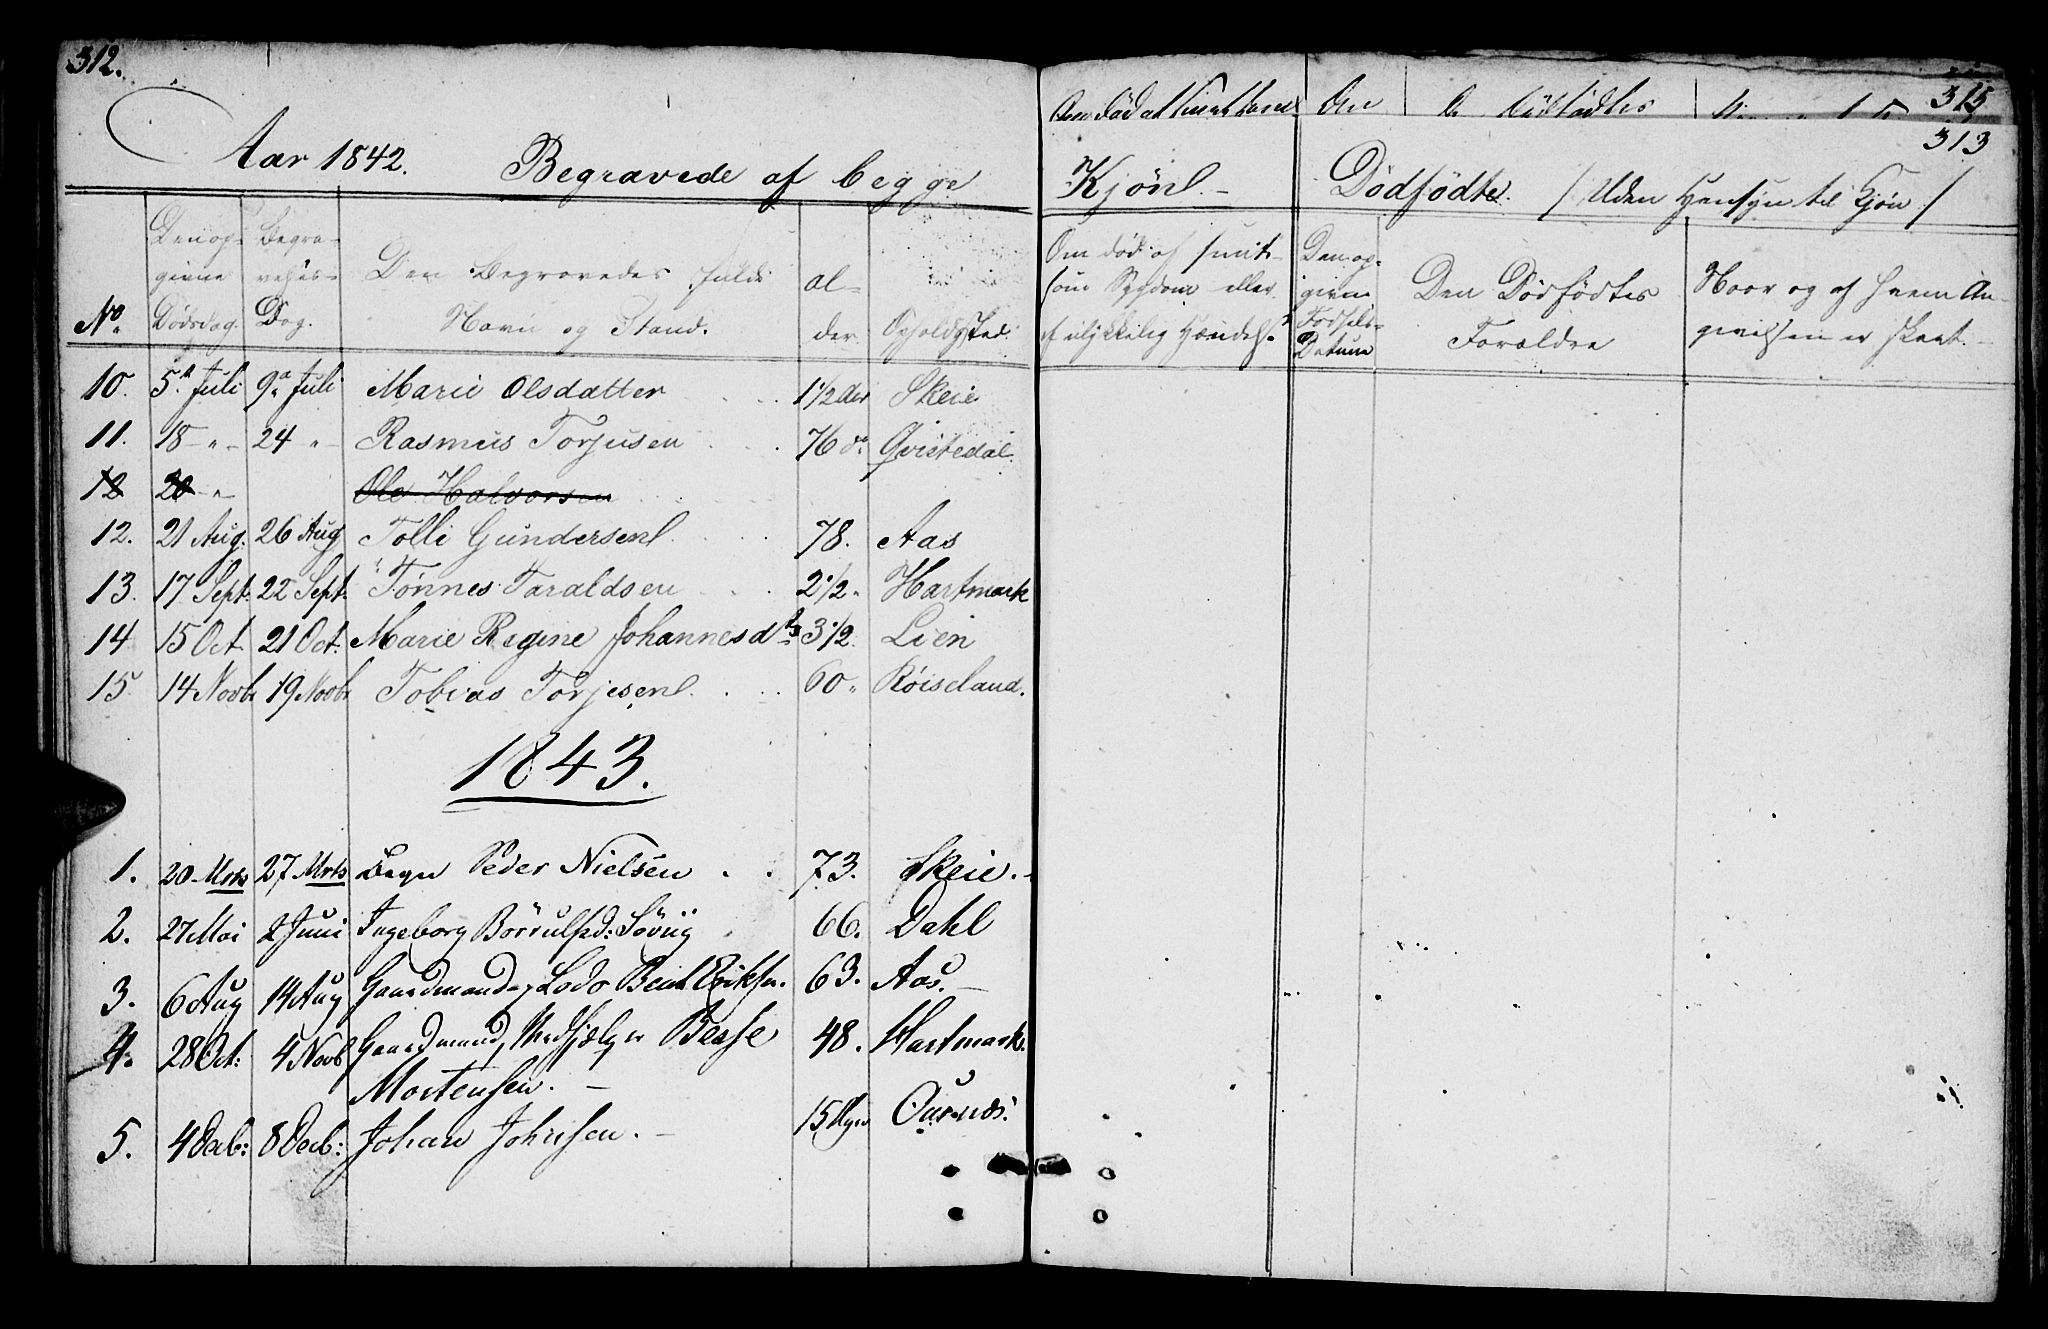 312.
Aar 1842. Begravede af begge Kjönl.
Dödfödte. / Uden Hensyn til Kjön /
313
315
No. Den opgivne Dödsdag. Begravelses-Dag. Den Begravedes fulde Navn og Stand. Alder Opholdssted.
Om död af smitsom Sygdom eller af ulykkelig Hændelse
Den opgivne Födsels-Datum
Den Dödfödtes Forældre
Naar og af hvem Angivelsen er skeet.
10. 5.t Juli 9.a Juli Marie Olsdatter 1 1/2 Aar Skeie
11. 18 " 24 " Rasmus Torjusen 76 do. Qvistedal
12 20 " Ole Halvorsen
12. 21 Aug. 26 Aug Tolli Gundersen 78. Aas
13. 17 Sept: 22 Sept: Tønnes Taraldsen 2 1/2 " Hartmark
14 15 Oct 21 Oct: Marie Regine Johannesdt. 3 1/2 Lien
15 14 Novbr 19 Novbr Tobias Torjesen 60 " Røiseland.
1843.
1. 20 Mrts 27 Mrts Peder Nielsen 73. Skeie.
2. 27 Mai 2 Juni Ingeborg Börrulfsd: 66. Dahl
3. 6 Aug 14 Aug Gaardmand og Lods Bent Eriksen. 63. Aas.
4. 28 Oct: 4 Novb Gaardmand, Medhjælper Besse 48. Hartmark.
Mortensen.
5. 4 Decb: 8 Decb: Johan Johnsen. 15 Uger